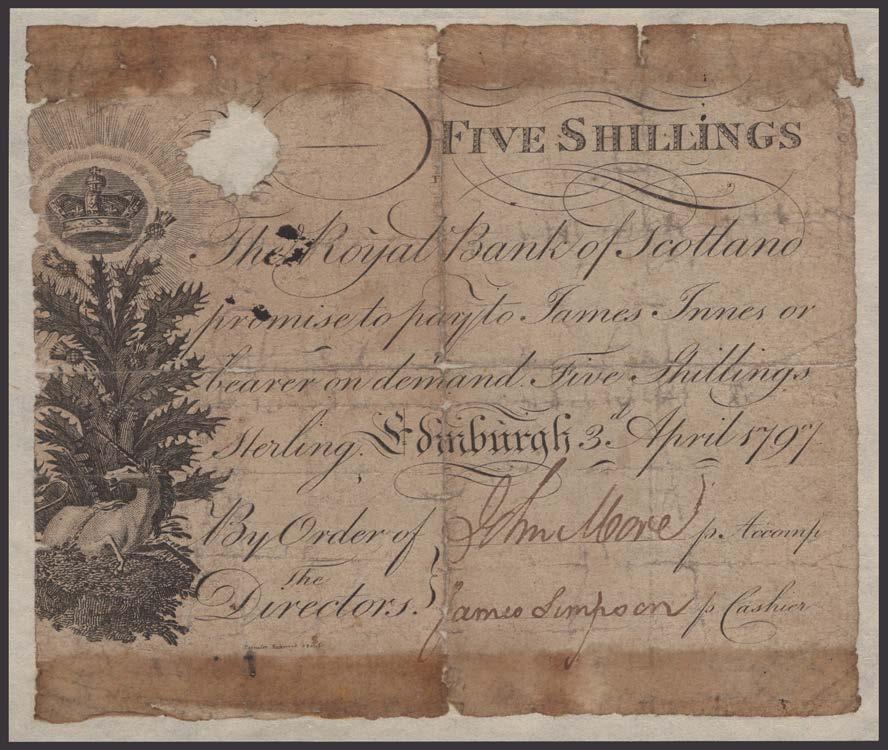 FIVE SHILLINGS
The Royal Bank of Scotland
promise to pay to James Innes or
bearer on demand Five Shillings
Sterling. Edinburgh 3.d April 1797
By Order of John More p. Accomp
The
Directors. James Simpson p Cashier